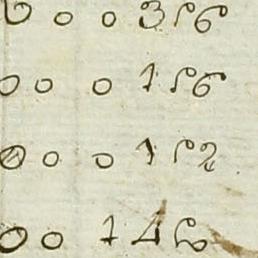 0 0 0 3 5 6
0 0 0 1 5 6
0 0 0 1 5 2
0 0 1 4 5